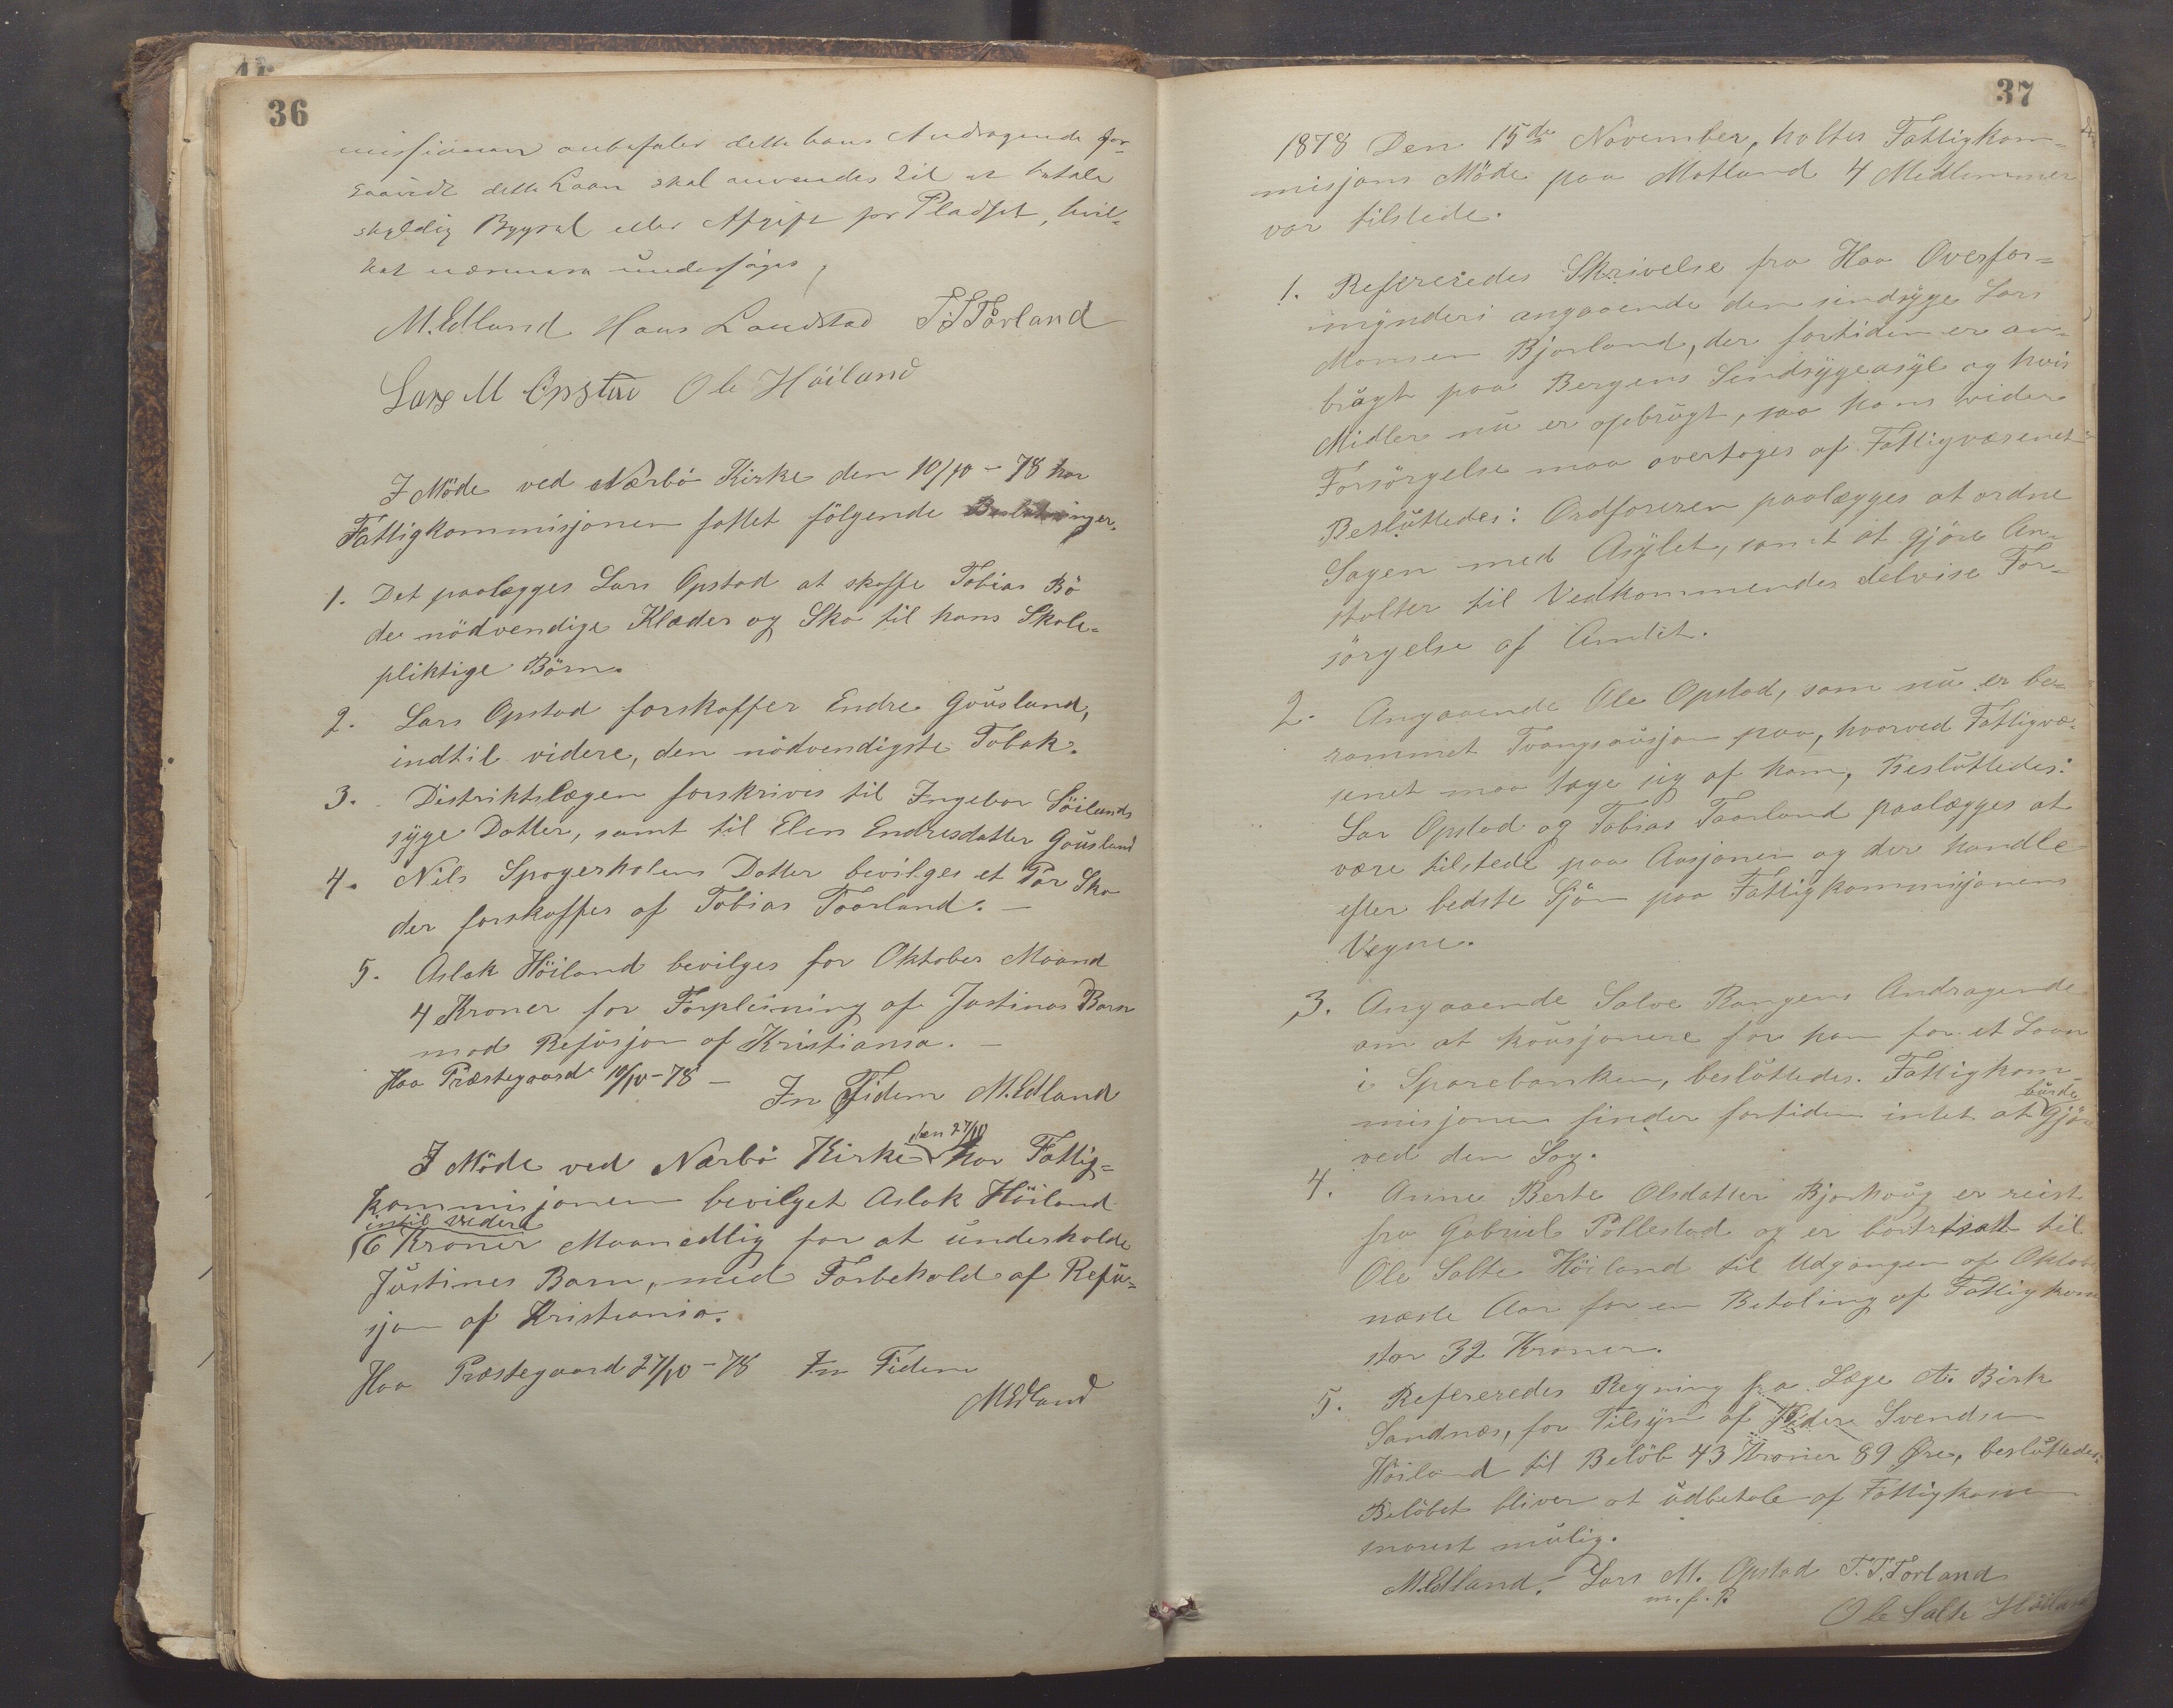 36
missionen anbefaler dette hans Andragende for-
saavidt dette Laan skal anvendes til at betale
skyldig Bygsel eller Afgift pr Pladset, hvil-
ket nærmere undersøges,
M. Edland Hans Landstad T. T Torland
Lars M Opstad Ole Höiland
I Möde ved Nærbö Kirke den 10/10 - 78 har
Fattigkommisjonen fattet fölgende Beslutninger.
1. Det paalægges Lars Opstad at skaffe Tobias Bö
de nödvendige Klæder og Sko til hans Skole-
pliktige Börn.
2. Lars Opstad forskaffer Endre Gousland,
indtil videre, den nödvendigste Tobak.
3. Distriktslægen forskrives til Ingebor Söilands
syge Datter, samt til Elen Endresdatter Gousland
4. Nils Spogerholens Datter bevilges et Par Sko
der forskaffes af Tobias Taarland. -
5. Aslak Höiland bevilges for Oktober Maand
4 Kroner for Forpleining af Justinas Barn
mod Refusjon af Kristiania. -
Haa Præstegaard 10/10 - 78 - In Fidem M. Edland
den 27/10
I Möde ved Nærbö Kirke har Fattig=
kommisjonen bevilget Aslak Höiland
intil videre
6 Kroner Maanedlig for at underholde
Justines Barn, med Forbehold af Refu-
sjon af Kristiania.
Haa Præstegaard 27/10 - 78 In Fidem
M Edland
37
1878 Den 15de November, holtes Fattigkom=
misjons Möde paa Motland 4 Medlemmer
var tilstede.
1. Refereredes Skrivelse fra Haa Overfor=
mynderi angaaende den sindsyge Lars
Monsen Bjorland, der fortiden er an-
bragt paa Bergens Sindsygeasyl og hvis
Midler nu er opbrugt, saa hans videre
Forsörgelse maa overtages af Fattigvæsenet
Besluttedes: Ordföreren paalægges at ordne
Sagen med Asylet, samt at gjöre An-
stalter til Vedkommendes delvise For-
sörgelse af Amtet.
2. Angaaende Ole Opstad, som nu er be-
rammet Tvangsausjon paa, hvorved Fattigvæ-
senet maa tage sig af ham, Besluttedes:
Lar Opstad og Tobias Taarland paalægges at
være tilstede paa Ausjonen og der handle
efter bedste Sjön paa Fattigkommisjonens
Vegne.
3. Angaaende Salve Rangens Andragende
om at kousjonere for ham for et Laan
i Sparebanken, besluttedes. Fattigkom-
misjonen finder fortiden intet at burde gjöre
ved den Sag.
4. Anne Berte Olsdatter Bjorhoug er reist
fra Gabriel Pollestad og er bortsatt til
Ole Salte Höiland til Udgangen af Oktober
næste Aar for en Betaling af Fattigkom
stor 32 Kroner.
5. Refereredes Regning fra Læge A. Birk
Sandnæs, for Tilsyn af Peder Svendsen
Höiland til Belöb 43 Kroner 89 Øre, besluttedes:
Belöbet bliver at udbetale af Fattigkassen
snarest mulig.
M. Edland. - Lars M. Opstad T. T. Torland
m. f. P.
Ole Salte Höiland